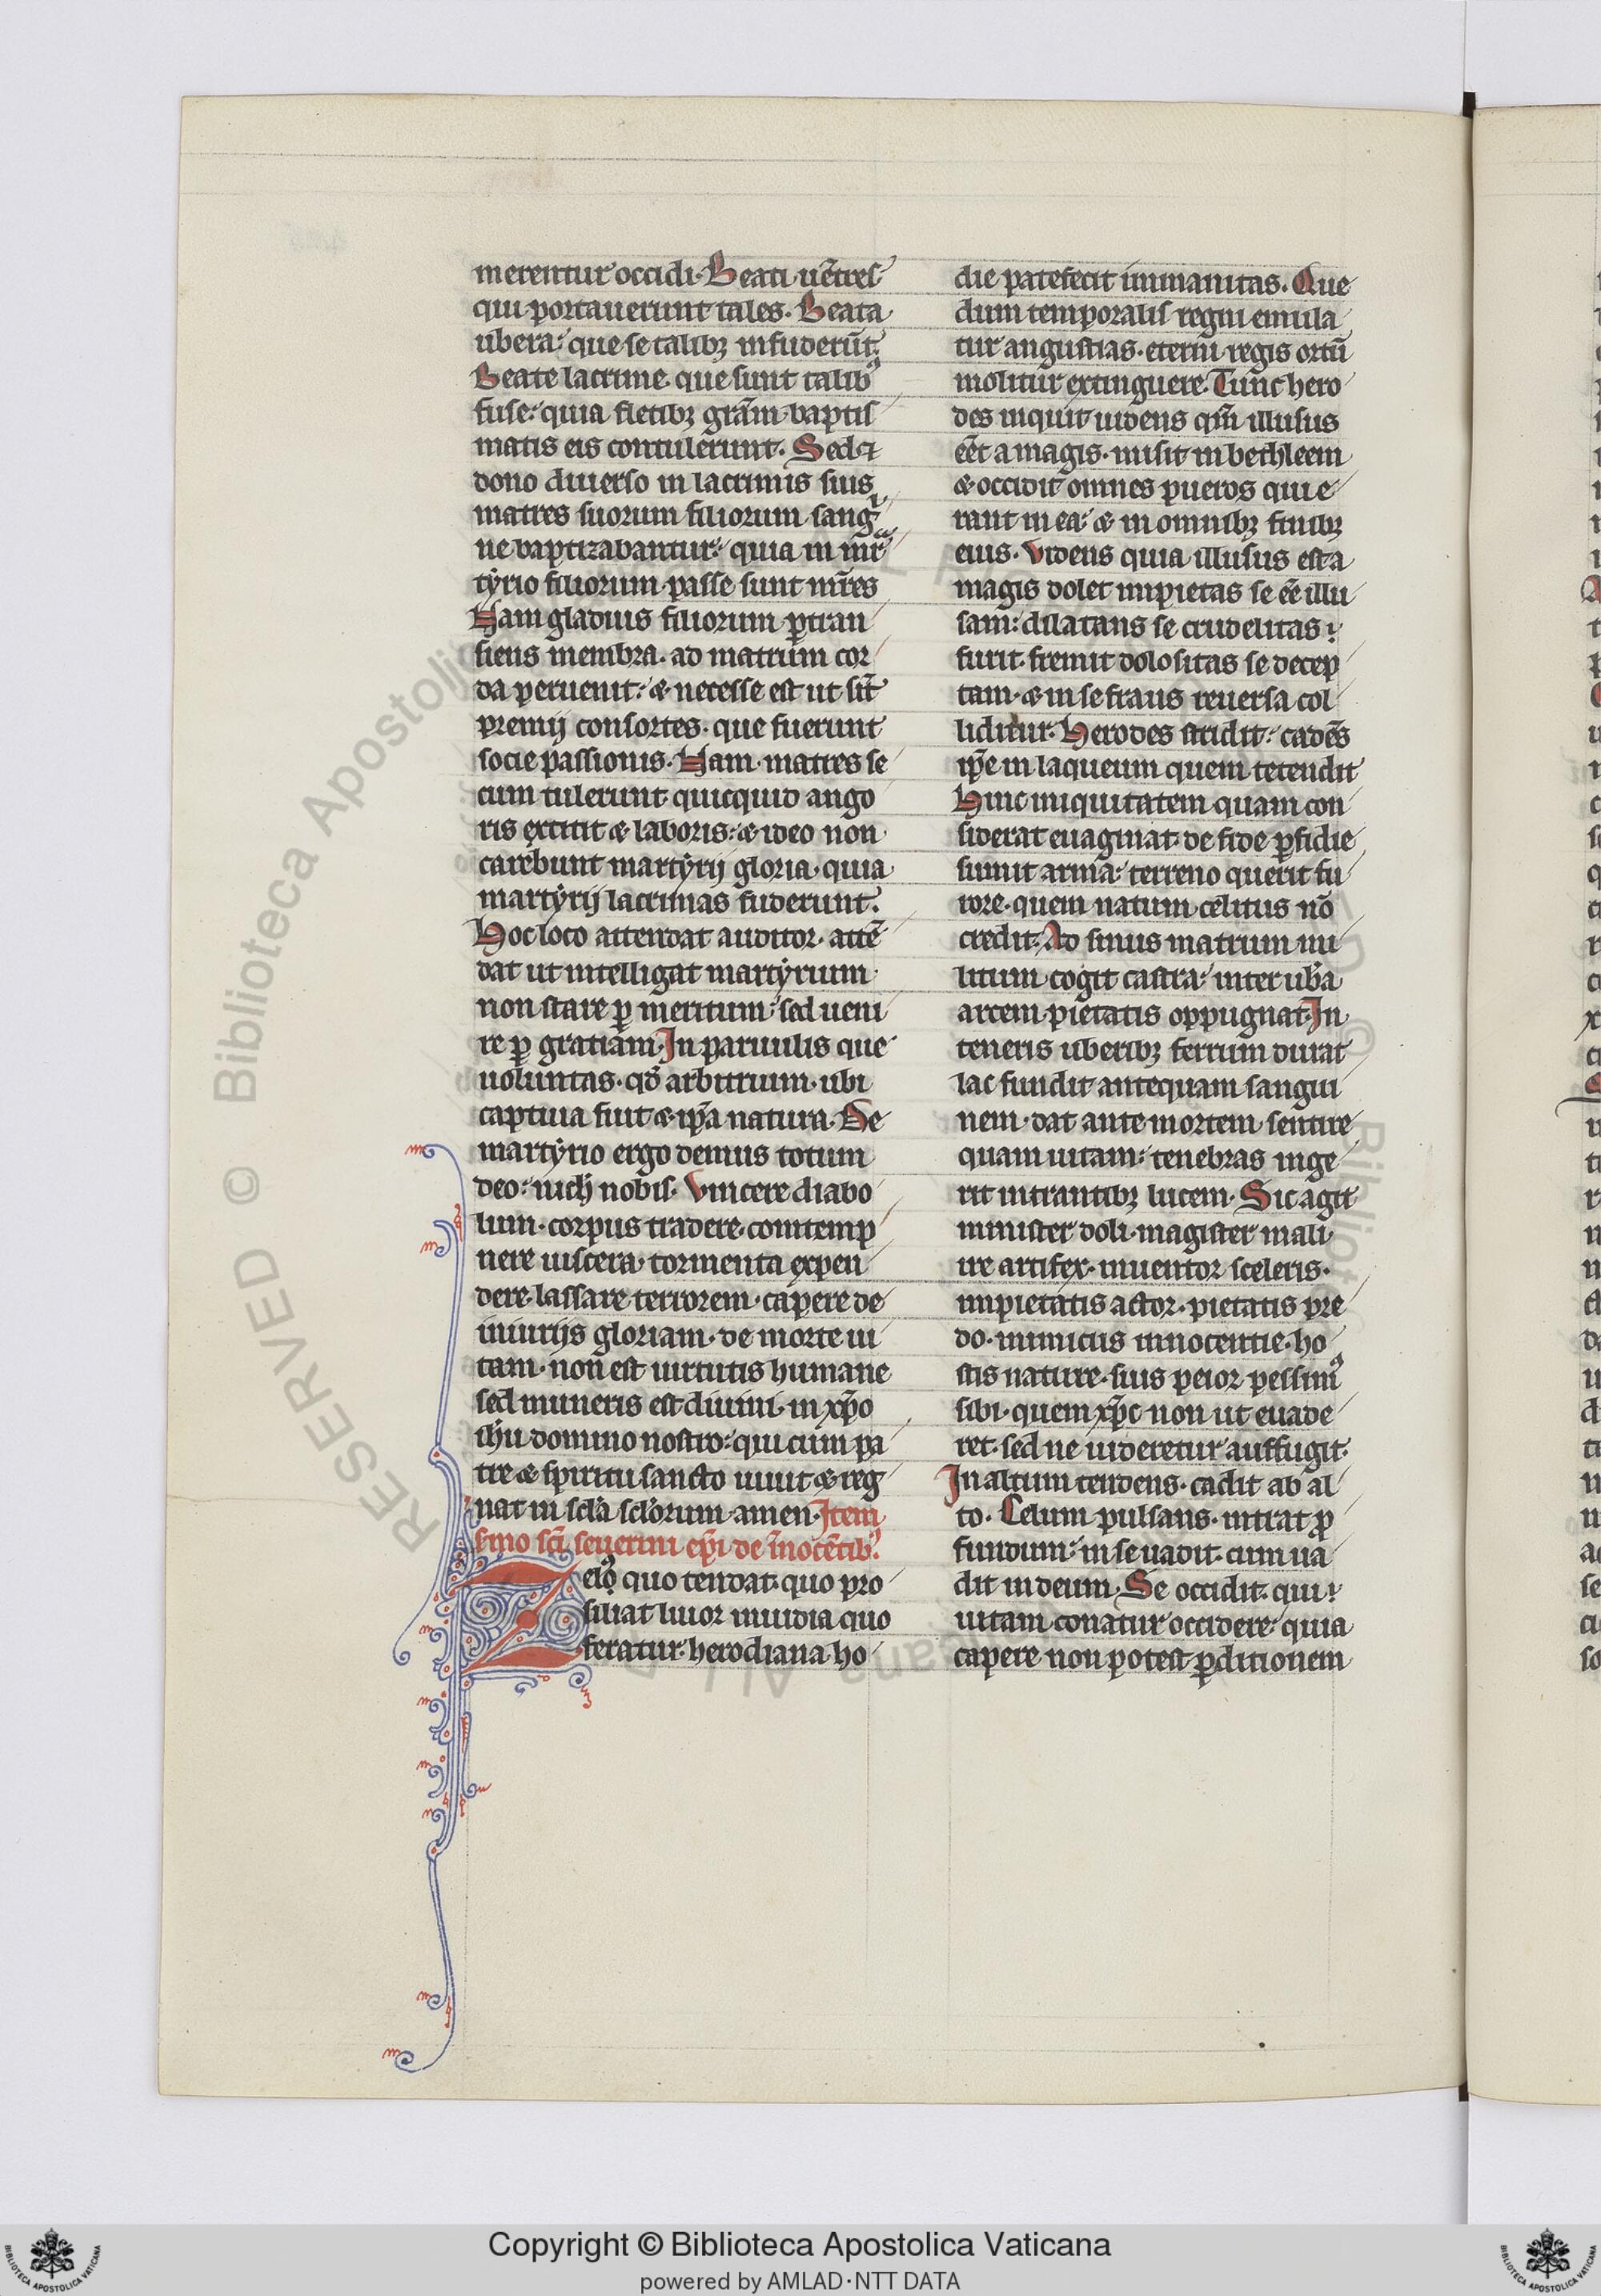 merentur occidi. Beati uēntres
qui portauerunt tales. Beata
ubera: que se talibꝫ infuderūt.
Beate lacrime que sunt talibꝰ
fuse: quia fletibꝫ grām baptis
matis eis contulerunt. Sed ⁊
dono diuerso in lacrimis suis
matres suorum filiorum sangi
ne baptizabantur: quia in mar
tyrio filiorum passe sunt mr̄es
Nam gladius filiorum ꝑtran
siens membra. ad matrum cor
da peruenit: ⁊ necesse est ut sīt
premij consortes. que fuerunt
socie passionis. Nam matres se
cum tulerunt quicquid ango
ris extitit ⁊ laboris: ⁊ ideo non
carebunt martyrij gloria. quia
martyrij lacrimas fuderunt.
Hoc loco attendat auditor. attē
dat ut intelligat martyrium
non stare ꝑ meritum: sed ueni
re ꝑ gratiam. In paruulis que
uoluntas. qd̄ arbitrium. ubi
captiua fuit ⁊ ip̄a natura. De
martyrio ergo demus totum
deo: nich̄ nobis. Vincere diabo
lum. corpus tradere. contemp
nere uiscera. tormenta expen
dere. lassare terrorem. capere de
iniurijs gloriam. de morte ui
tam. non est uirtutis humane
sed muneris est diuini. in xp̄o
ih̄u domino nostro: qui cum pa
tre ⁊ spiritu sancto uiuit ⁊ reg
nat in scl̄a scl̄orum amen. Item
s̄mo sc̄i seuerini ep̄i de īnocētibꝰ.
Zelꝰ quo tendat. quo pro
siliat liuor inuidia quo
feratur. herodiana ho
die patefecit inmanitas. Que
dum temporalis regni emula
tur angustias. eterni regis ortū
molitur extinguere. Tunc hero
des inquit uidens qm̄ illusus
eēt a magis. misit in bethleem
⁊ occidit omnes pueros qui e
rant in ea: ⁊ in omnibꝫ finibꝫ
eius. Videns quia illusus est a
magis dolet impietas se eē illu
sam: dilatans se crudelitas
furit. fremit dolositas se decep
tam. ⁊ in se fraus reuersa col
liditur. Herodes stridit: cadēs
ip̄e in laqueum quem tetendit
Hinc iniquitatem quam con
siderat euaginat. de fide ꝑfidie
sumit arma: terreno querit fu
rore. quem natum celitus nō
credit. Ad sinus matrum mi
litum cogit castra: inter ub̄a
arcem pietatis oppugnat. In
teneris uberibꝫ ferrum durat
lac fundit antequam sangui
nem. dat ante mortem sentire
quam uitam: tenebras inge
rit intrantibꝫ lucem. Sic agit
minister doli. magister mali.
ire artifex. inuentor sceleris.
impietatis actor. pietatis pre
do. inimicus innocentie. ho
stis nature. suis peior pessimꝰ
sibi. quem xp̄c non ut euade
ret. sed ne uideretur auffugit.
In altum tendens. cadit ab al
to. Celum pulsans. intrat ꝓ
fundum: in se uadit. cum ua
dit in deum. Se occidit. qui
uitam conatur occidere: quia
capere non potest ꝑditionem